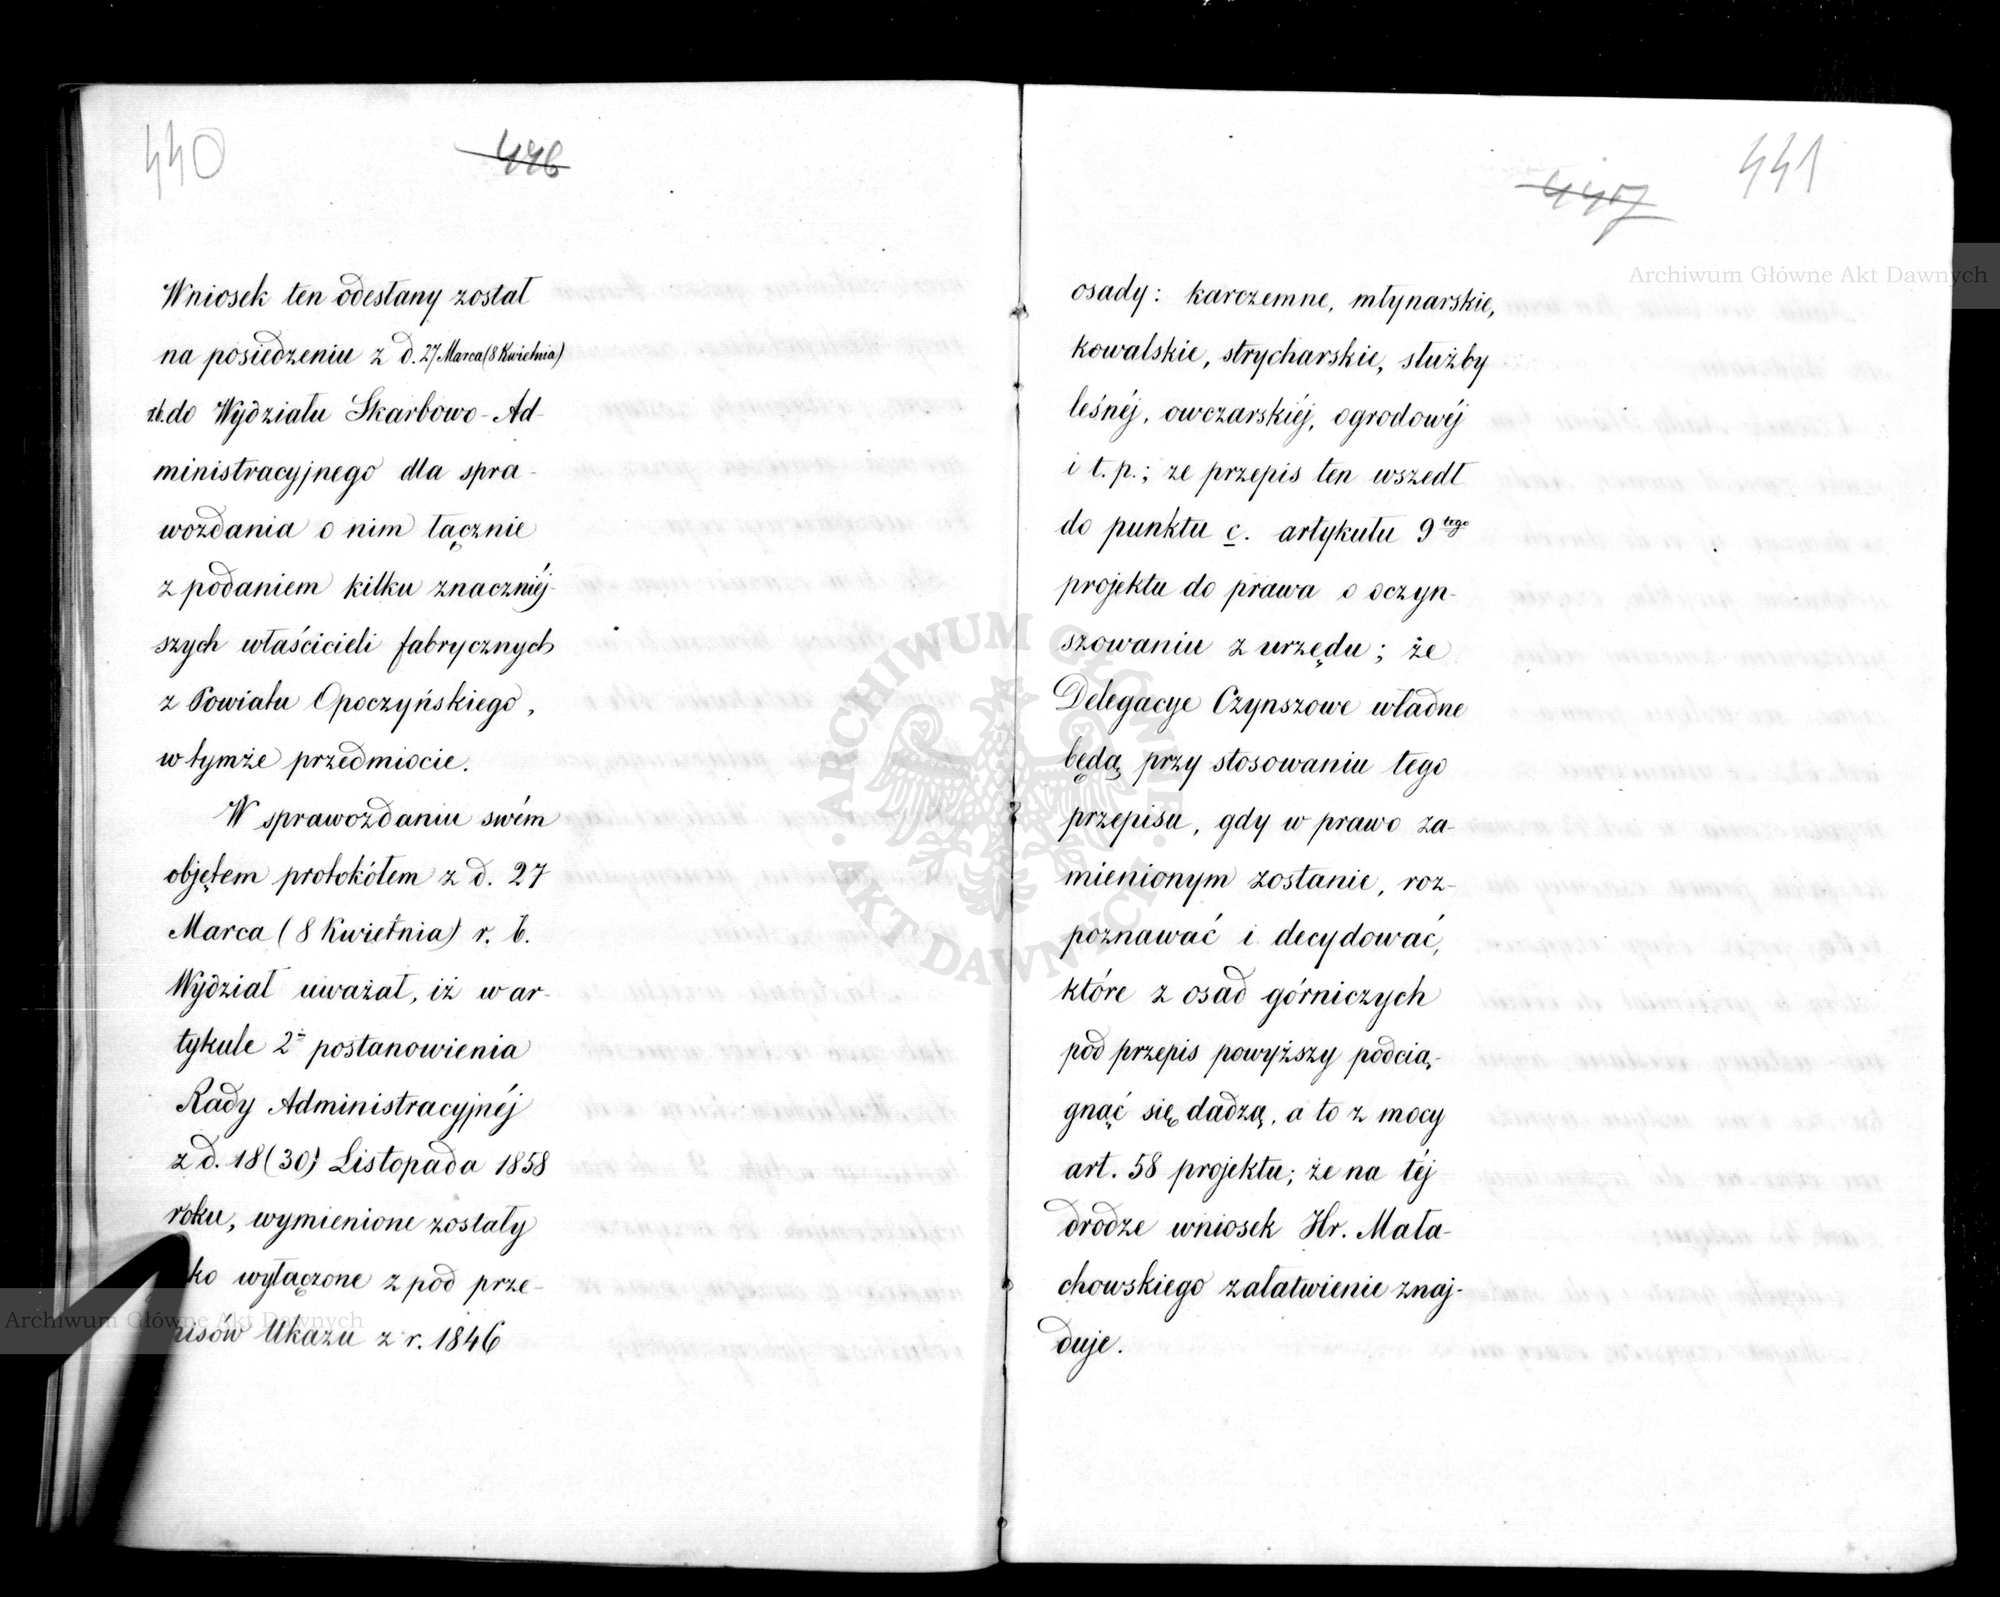 440
446
Wniosek ten odesłany został
na posiedzeniu z d. 27 Marca (8 Kwietnia)
r.b. do Wydziału Skarbowo-Ad-
ministracyjnego dla spra-
wozdania o nim łącznie
z podaniem kilku znaczniéj-
szych właścicieli fabrycznych
z Powiatu Opoczyńskiego,
w tymże przedmiocie.
W sprawozdaniu swém
objętem protokółem z d. 27
Marca (8 Kwietnia) r. b.
Wydział uważał, iż w ar-
tykule 2m postanowienia
Rady Administracyjnéj
z d. 18 (30) Listopada 1858
roku, wymienione zostały
ko wyłączone z pod prze-
pisów Ukazu z r. 1846
441
447
osady: karczemne, młynarskie,
kowalskie, strycharskie, służby
leśnéj, owczarskiéj, ogrodowéj
i t. p.; że przepis ten wszedł
do punktu c. artykułu 9tego
projektu do prawa o oczyn-
szowaniu z urzędu; że
Delegacye Czynszowe władne
będą przy stosowaniu tego
przepisu, gdy w prawo za-
mienionym zostanie, roz-
poznawać i decydować,
które z osad górniczych
pod przepis powyższy podcią-
gnąć się dadzą, a to z mocy
art. 58 projektu; że na téj
drodze wniosek Hr. Mała-
chowskiego załatwienie znaj-
duje.
Archiwum Główne Akt Dawnych
Archiwum Główne Akt Dawnych
ARCHIWUM GŁÓWNE AKT DAWNYCH